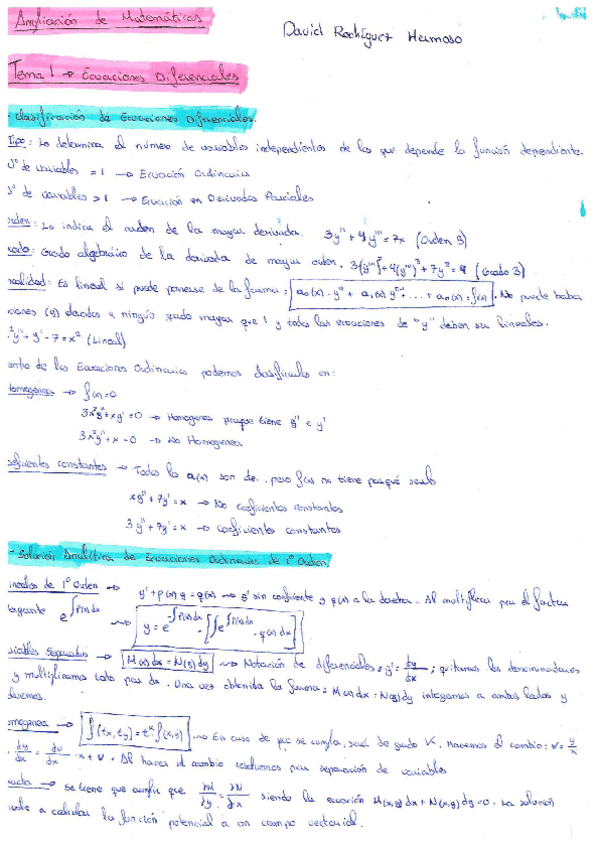 Ampliación de Matemáticas
David Rodríguez Hermoso
Tema 1 → Ecuaciones Diferenciales
- Clasificación de Ecuaciones Diferenciales.
Tipo: Lo determina el número de variables independientes de las que depende la función dependiente.
Nº de variables = 1 → Ecuación Ordinaria
Nº de variables > 1 → Ecuación en Derivadas Parciales
orden: Lo indica el orden de la mayor derivada. 3y'' + 4y''' = 7x (Orden 3)
rado: Grado algebráico de la derivada de mayor orden. (Grado 3)
nealidad: Es lineal si puede ponerse de la forma: No puede haber
ciones (y) elevados a ningún grado mayor que 1 y todas las ecuaciones de "y" deben ser lineales.
y'' + y' - 7 = x² (Lineal)
entro de las Ecuaciones Ordinarias podemos clasificarlas en:
homogéneas → f(x) = 0
3x²y'' + xy' = 0 → Homogénea porque tiene y'' e y'
3x²y'' + x = 0 → No Homogénea
oeficientes constantes → Todos los a(x) son cte., pero f(x) no tiene porqué serlo
xy'' + 7y' = x → No coeficientes constantes
3y'' + 7y' = x → coeficientes constantes
- Solución Analítica de Ecuaciones Ordinarias de 1º Orden.
ineales de 1º Orden → y' + p(x)y = q(x) → y' sin coeficiente y q(x) a la derecha. Al multiplicar por el factor
tegrante e^∫p(x)dx → y = e^-∫p(x)dx · [∫e^∫p(x)dx · q(x)dx]
riables Separadas → M(x)dx = N(y)dy → Notación de diferenciales: y' = dy/dx; quitamos los denominadores
y multiplicamos todo por dx. Una vez obtenida la forma: M(x)dx = N(y)dy integramos a ambos lados y
olvemos.
omogénea → f(tx, ty) = t^k f(x,y) → En caso de que se cumpla, será de grado K. Hacemos el cambio: v = y/x
dy/dx = dv/dx · x + v. Al hacer el cambio resolvemos por separación de variables
xacta → se tiene que cumplir que ∂M/∂y = ∂N/∂x siendo la ecuación M(x,y)dx + N(x,y)dy = 0. La solución
uale a calcular la función potencial a un campo vectorial.